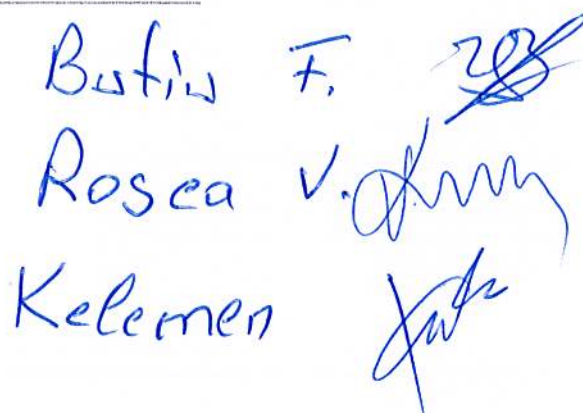 Butiu F.
Rosca V.
Kelemen